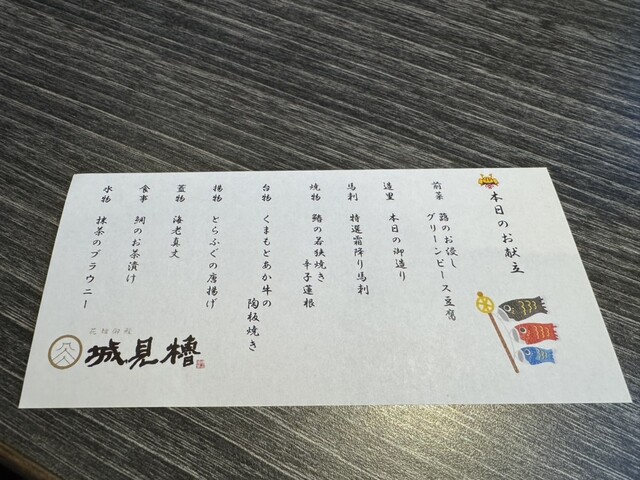 本日のお献立
前菜 蕗のお浸し
グリーンピース豆腐
造里 本日の御造り
馬刺 特選霜降り馬刺
焼物 鰆の若狭焼き
辛子蓮根
台物 くまもとあか牛の
陶板焼き
揚物 とらふぐの唐揚げ
蓋物 海老真丈
食事 鯛のお茶漬け
水物 抹茶のブラウニー
花畑御殿
城見櫓